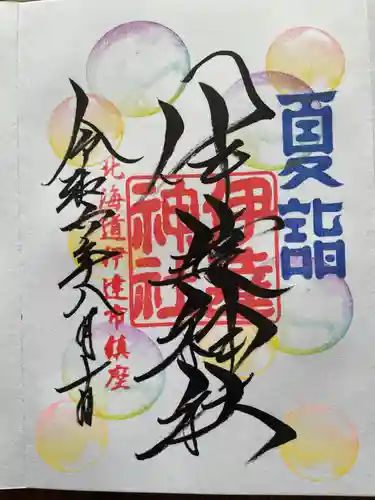 夏詣
伊達神社
伊達神社
北海道伊達市鎮座
令和六年八月十一日